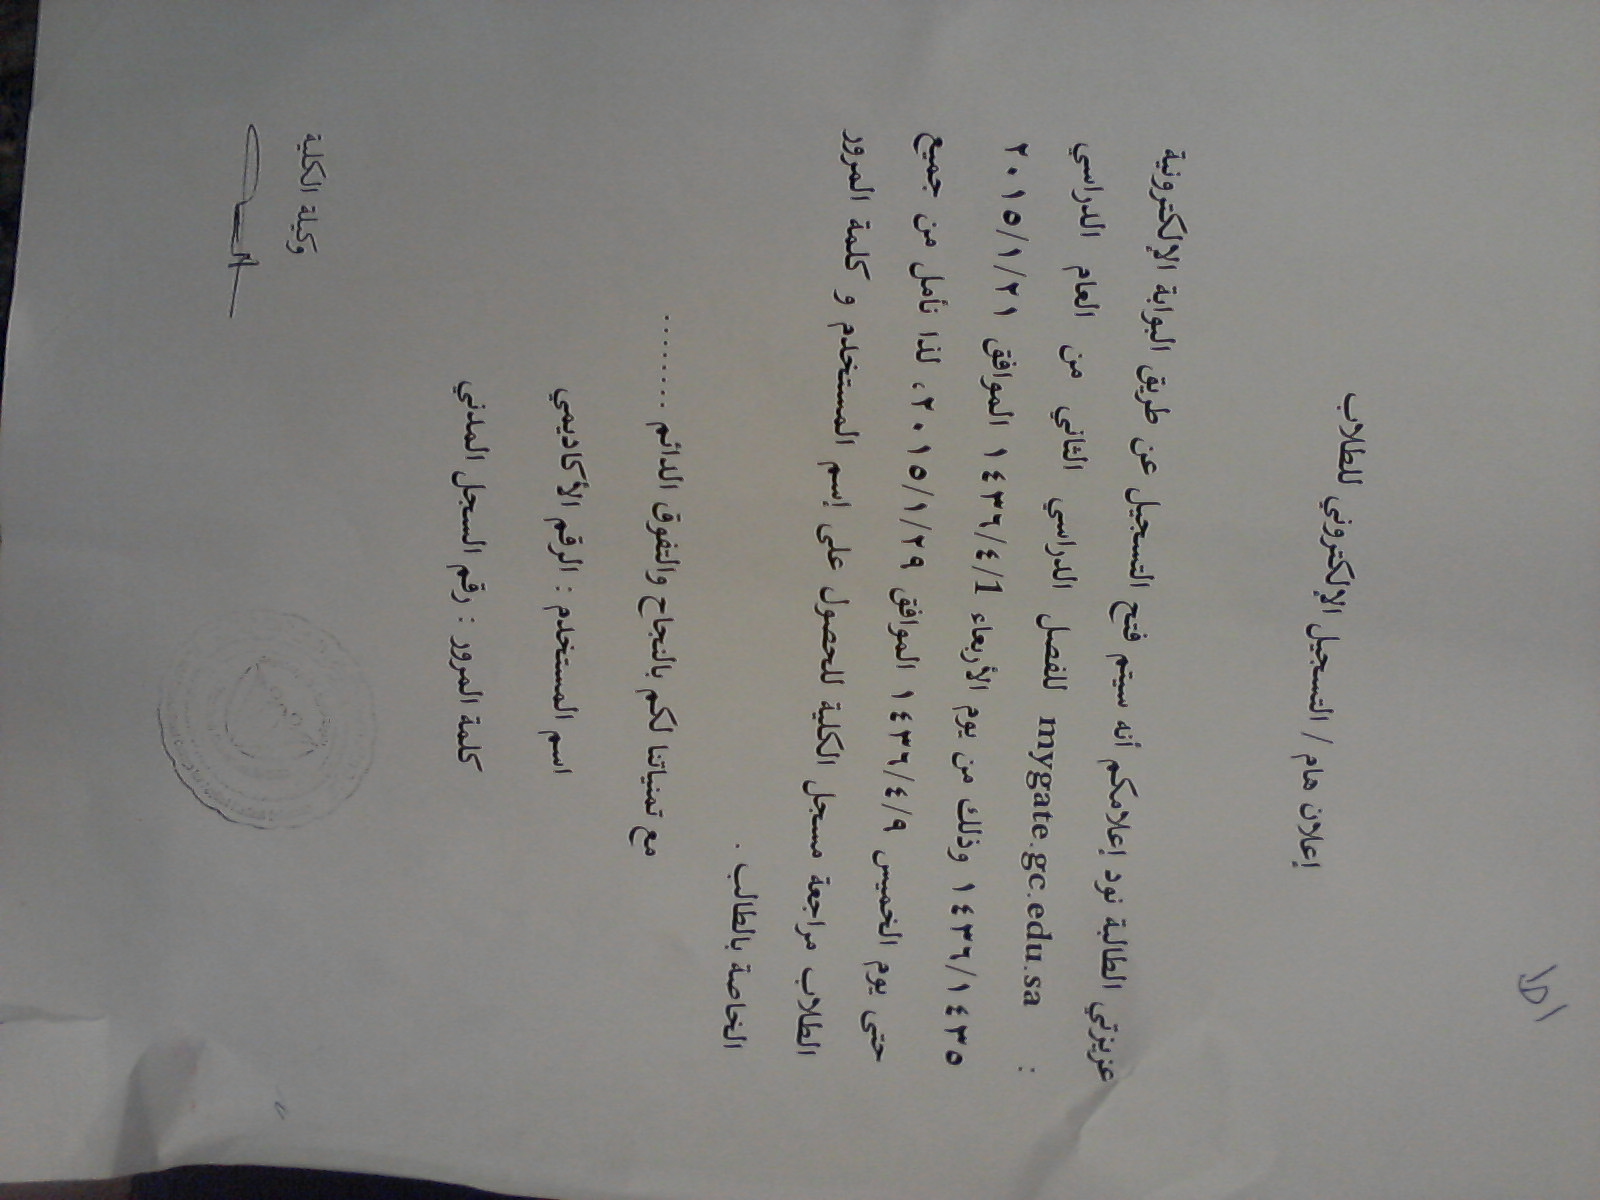 إعلان هام / التسجيل الإلكتروني للطلاب
عزيزتي الطالبة نود إعلامكم أنه سيتم فتح التسجيل عن طريق البوابة الإلكترونية
: mygate.gc.edu.sa للفصل الدراسي الثاني من العام الدراسي
١٤٣٦/١٤٣٥ وذلك من يوم الأربعاء ١٤٣٦/٤/1 الموافق ٢٠١٥/١/٢١
حتى يوم الخميس ١٤٣٦/٤/٩ الموافق ٢٠١٥/١/٢٩، لذا نأمل من جميع
الطلاب مراجعة مسجل الكلية للحصول على إسم المستخدم و كلمة المرور
الخاصة بالطالب .
مع تمنياتنا لكم بالنجاح والتفوق الدائم ........
اسم المستخدم : الرقم الأكاديمي
كلمة المرور : رقم السجل المدني
وكيلة الكلية